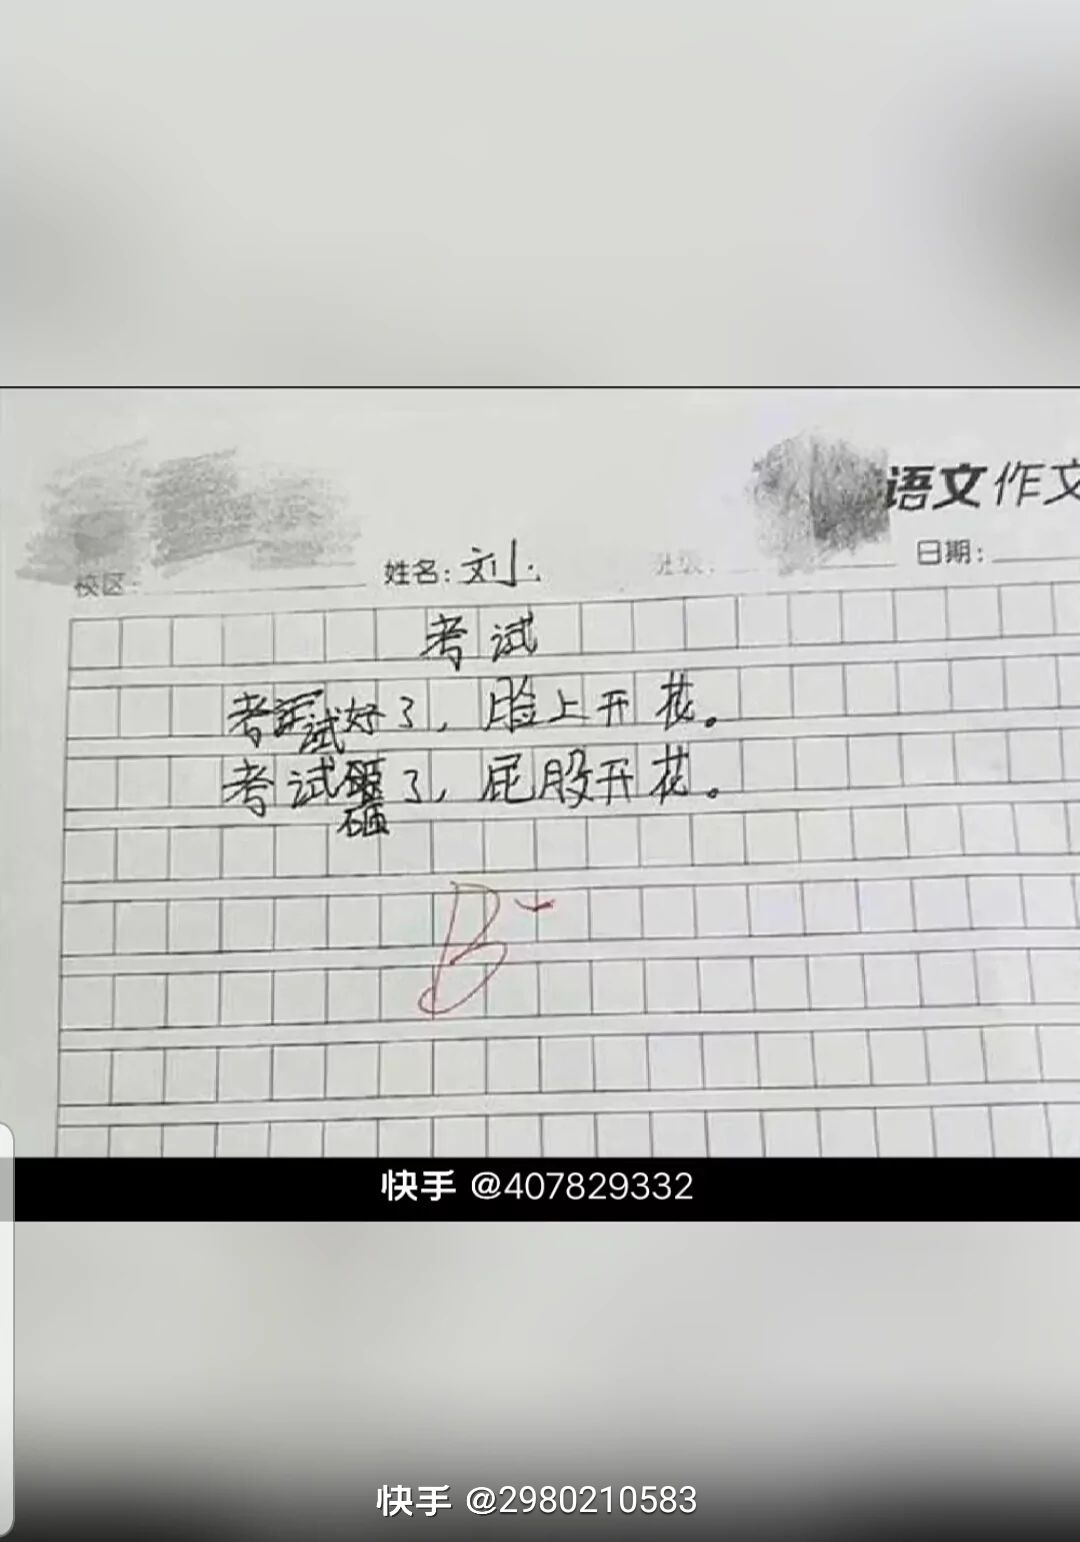 语文作文
校区: 姓名: 刘小 班级: 日期:
考试
考试好了，脸上开花。
考试砸了，屁股开花。
B-
快手 @407829332
快手 @2980210583